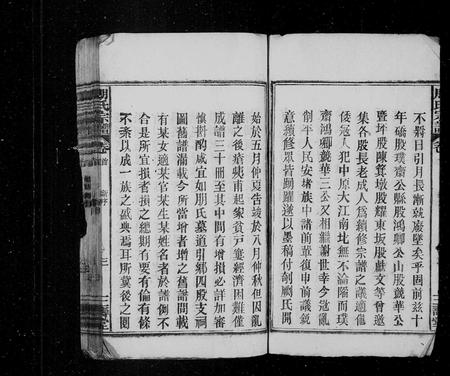 不爵日引月長漸就廢墜矣乎囬前玆十
年礄股璞齋公縣股鴻卿公山股兢華公
暨坪股陳箕墩股耀東坂股獻文等曾邀
集各股長老成人議續修宗譜之議適值
倭寇人犯中原大江南北無不淪陷而璞
齋鴻卿兢華三公又相繼謝世幸今寇亂
削平人民安堵族中諸前輩復申前議銳
意續修眾皆踴躍遂以墨稿付剞劂氏開
始於五月仲夏告竣於八月仲秋但因亂
離之後瘡痍甫起家貧戶窶經濟困難僅
成譜三十冊至其中間有增損必詳加審
慎斟酌咸宜如朋氏墓道引鄉四股支祠
圖舊譜滿載今所當增者增之舊譜間載
有某女適某官某生某姓名者於譜例不
合是所宜損者損之總期有要有倫有條
不紊以成一族之盛典焉耳所冀後之閱
朋氏宗譜
卷首
三
朋氏宗譜
卷